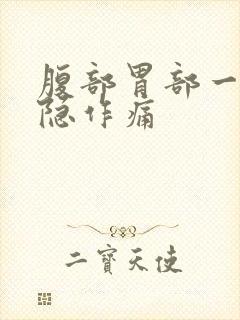 腹部胃部一
隐作痛
二寶天使